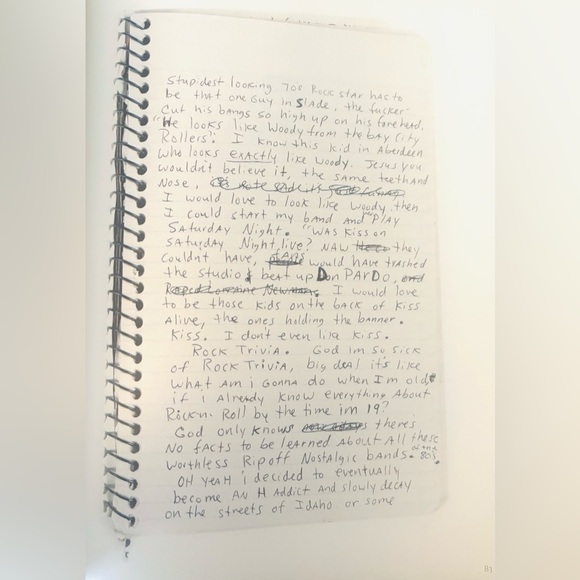 Stupidest looking 70s Rock star has to
be that one Guy in Slade, the fucker
cut his bangs so high up on his forehead.
"He looks like Woody from the bAy City
Rollers". I know this kid in Aberdeen
who looks exactly like Woody. Jesus you
wouldn't believe it, the same teeth and
Nose,
I would love to look like Woody then
I could start my band and "Play
SAturday Night. "WAS Kiss on
SAturday Night live? NAW they
couldnt have, fans would have trashed
the studio & beat up Don PARDo, and
Raped Loraine Newman. I would love
to be those Kids on the back of Kiss
Alive, the ones holding the banner.
Kiss. I don't even like Kiss.
Rock Trivia. God Im so sick
of Rock Trivia, big deal it's like
whAt Am i Gonna do when I'm old,
if I Already know everything About
Rockn. Roll by the time im 19?
God only knows theres
No fActs to be leArned About All these
worthless Ripoff NostAlgic bands. of the 80s.
OH YeAH i decided to eventually
become AN H Addict and slowly decay
on the streets of IdAho or some